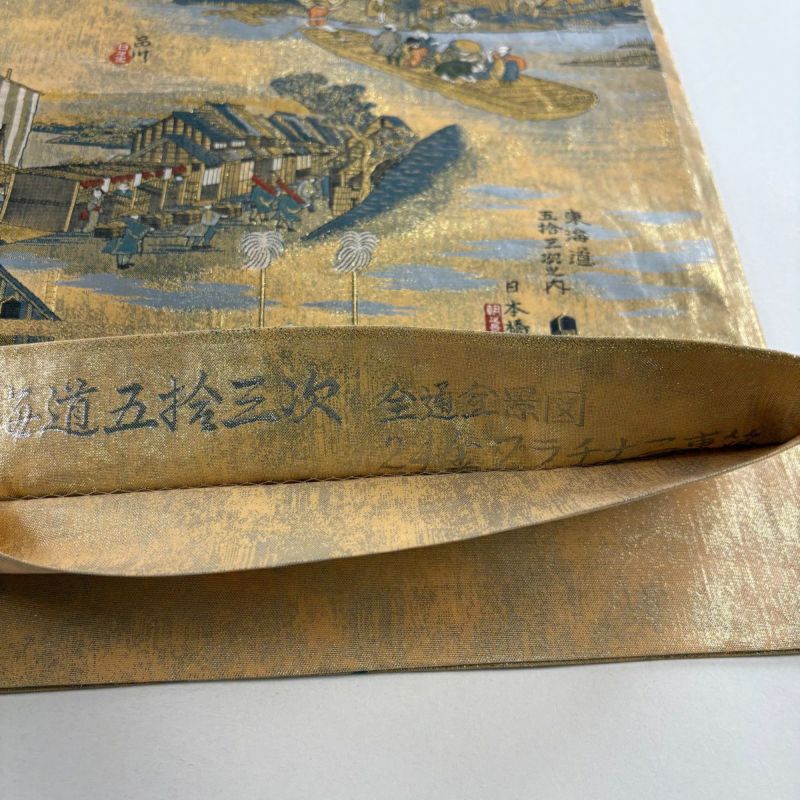 品川
東海道
五拾三次之内
日本橋
道五拾三次
全通全景図
24金プラチナ三重箔